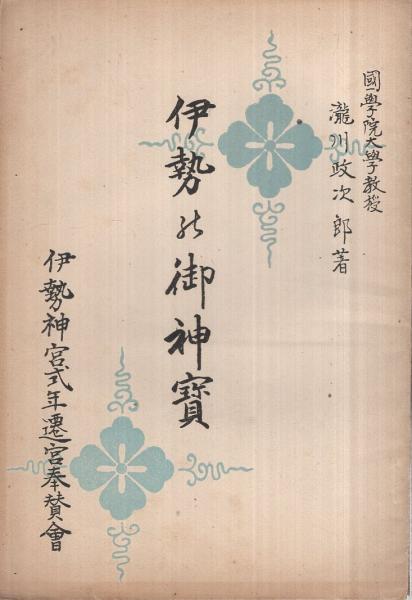 國學院大學教授
瀧川政次郎著
伊勢の御神寶
伊勢神宮式年遷宮奉賛會